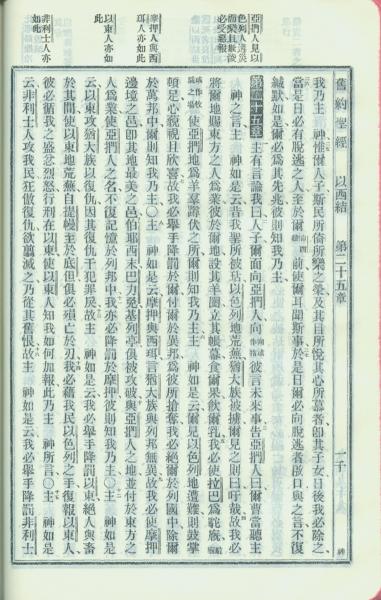 亞捫人見以
色列人遇災
而樂且鼓掌
必受嚴報
摩押人與西
珥人亦如此
以東人亦如
此
非利士人亦
如此
舊約聖經 以西結 第二十五章
我乃主 神惟爾人子斯民所倚所樂之榮及其目所悅其心所慕者卽其子女日後我必除之
當是日必有脫逃之人至於爾 前使爾耳聞斯事於是日爾必向脫逃者啟口與之言不復
緘默如是爾必爲其先兆彼則知我乃主
第二十五章 主有言諭我曰人子爾面向亞捫人向 彼言未來事告亞捫人曰爾曹當聽主
神之言主 神如是云昔我聖所被玷以色列地荒蕪猶大族被擄爾見之則曰吁哉故我必
將爾地賜東方之人爲業彼於爾地設其羊圈立其帳幕食爾果飲爾乳我必使拉巴爲駝廠
使亞捫地爲羊羣蹲伏之所爾則知我乃主主 神如是云爾見以色列地遭難則鼓掌
頓足心藐視且欣喜故我必舉手降罰於爾付爾於異邦爲彼所搶奪我必絕爾於列國中除爾
於萬邦中爾則知我乃主○主 神如是云摩押與西珥言猶大族與列邦無異故我必使摩押
邊境之邑卽其地最美之邑伯耶西末巴力免基列亭俱被攻破與亞捫人之地並付於東方之
人爲業使亞捫人之名不復記憶於列邦中我亦必降罰於摩押彼則知我乃主○主 神如是
云以東攻猶大族以復仇因其復仇干犯罪戾故主 神如是云我必舉手降罰以東絕人與畜
於其間使以東地荒蕪自提幔主於底但俱必殞亡於刃我必藉我民以色列之手復報以東人
彼必循我之盛忿烈怒行刑在以東使以東人知我如何加報此乃主 神所言○主 神如是
云非利士人攻我民狂傲復仇欲翦滅之乃從其舊恨故主 神如是云我必舉手降罰非利士